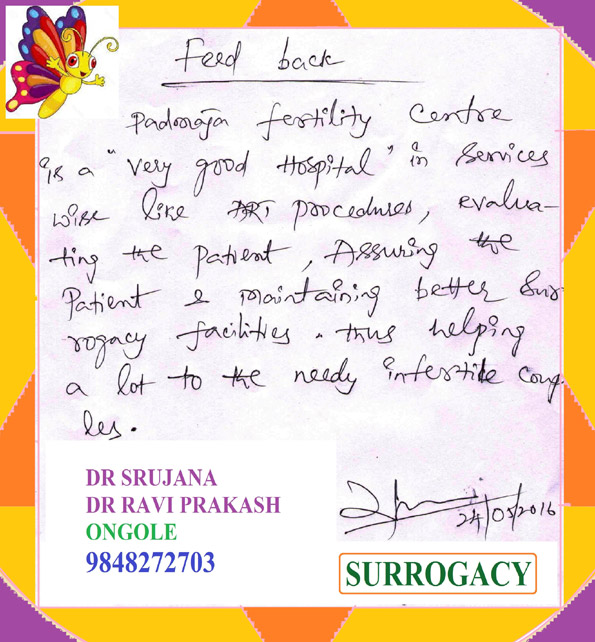 Feed back
Padmaja fertility Centre
is a "very good Hospital" in Services
wise like ART procedures, evalua-
ting the patient, Assuring the
Patient & maintaining better Sur-
rogacy facilities. thus helping
a lot to the needy infertile coup-
les.
DR SRUJANA
DR RAVI PRAKASH
ONGOLE
9848272703
24/05/2016
SURROGACY